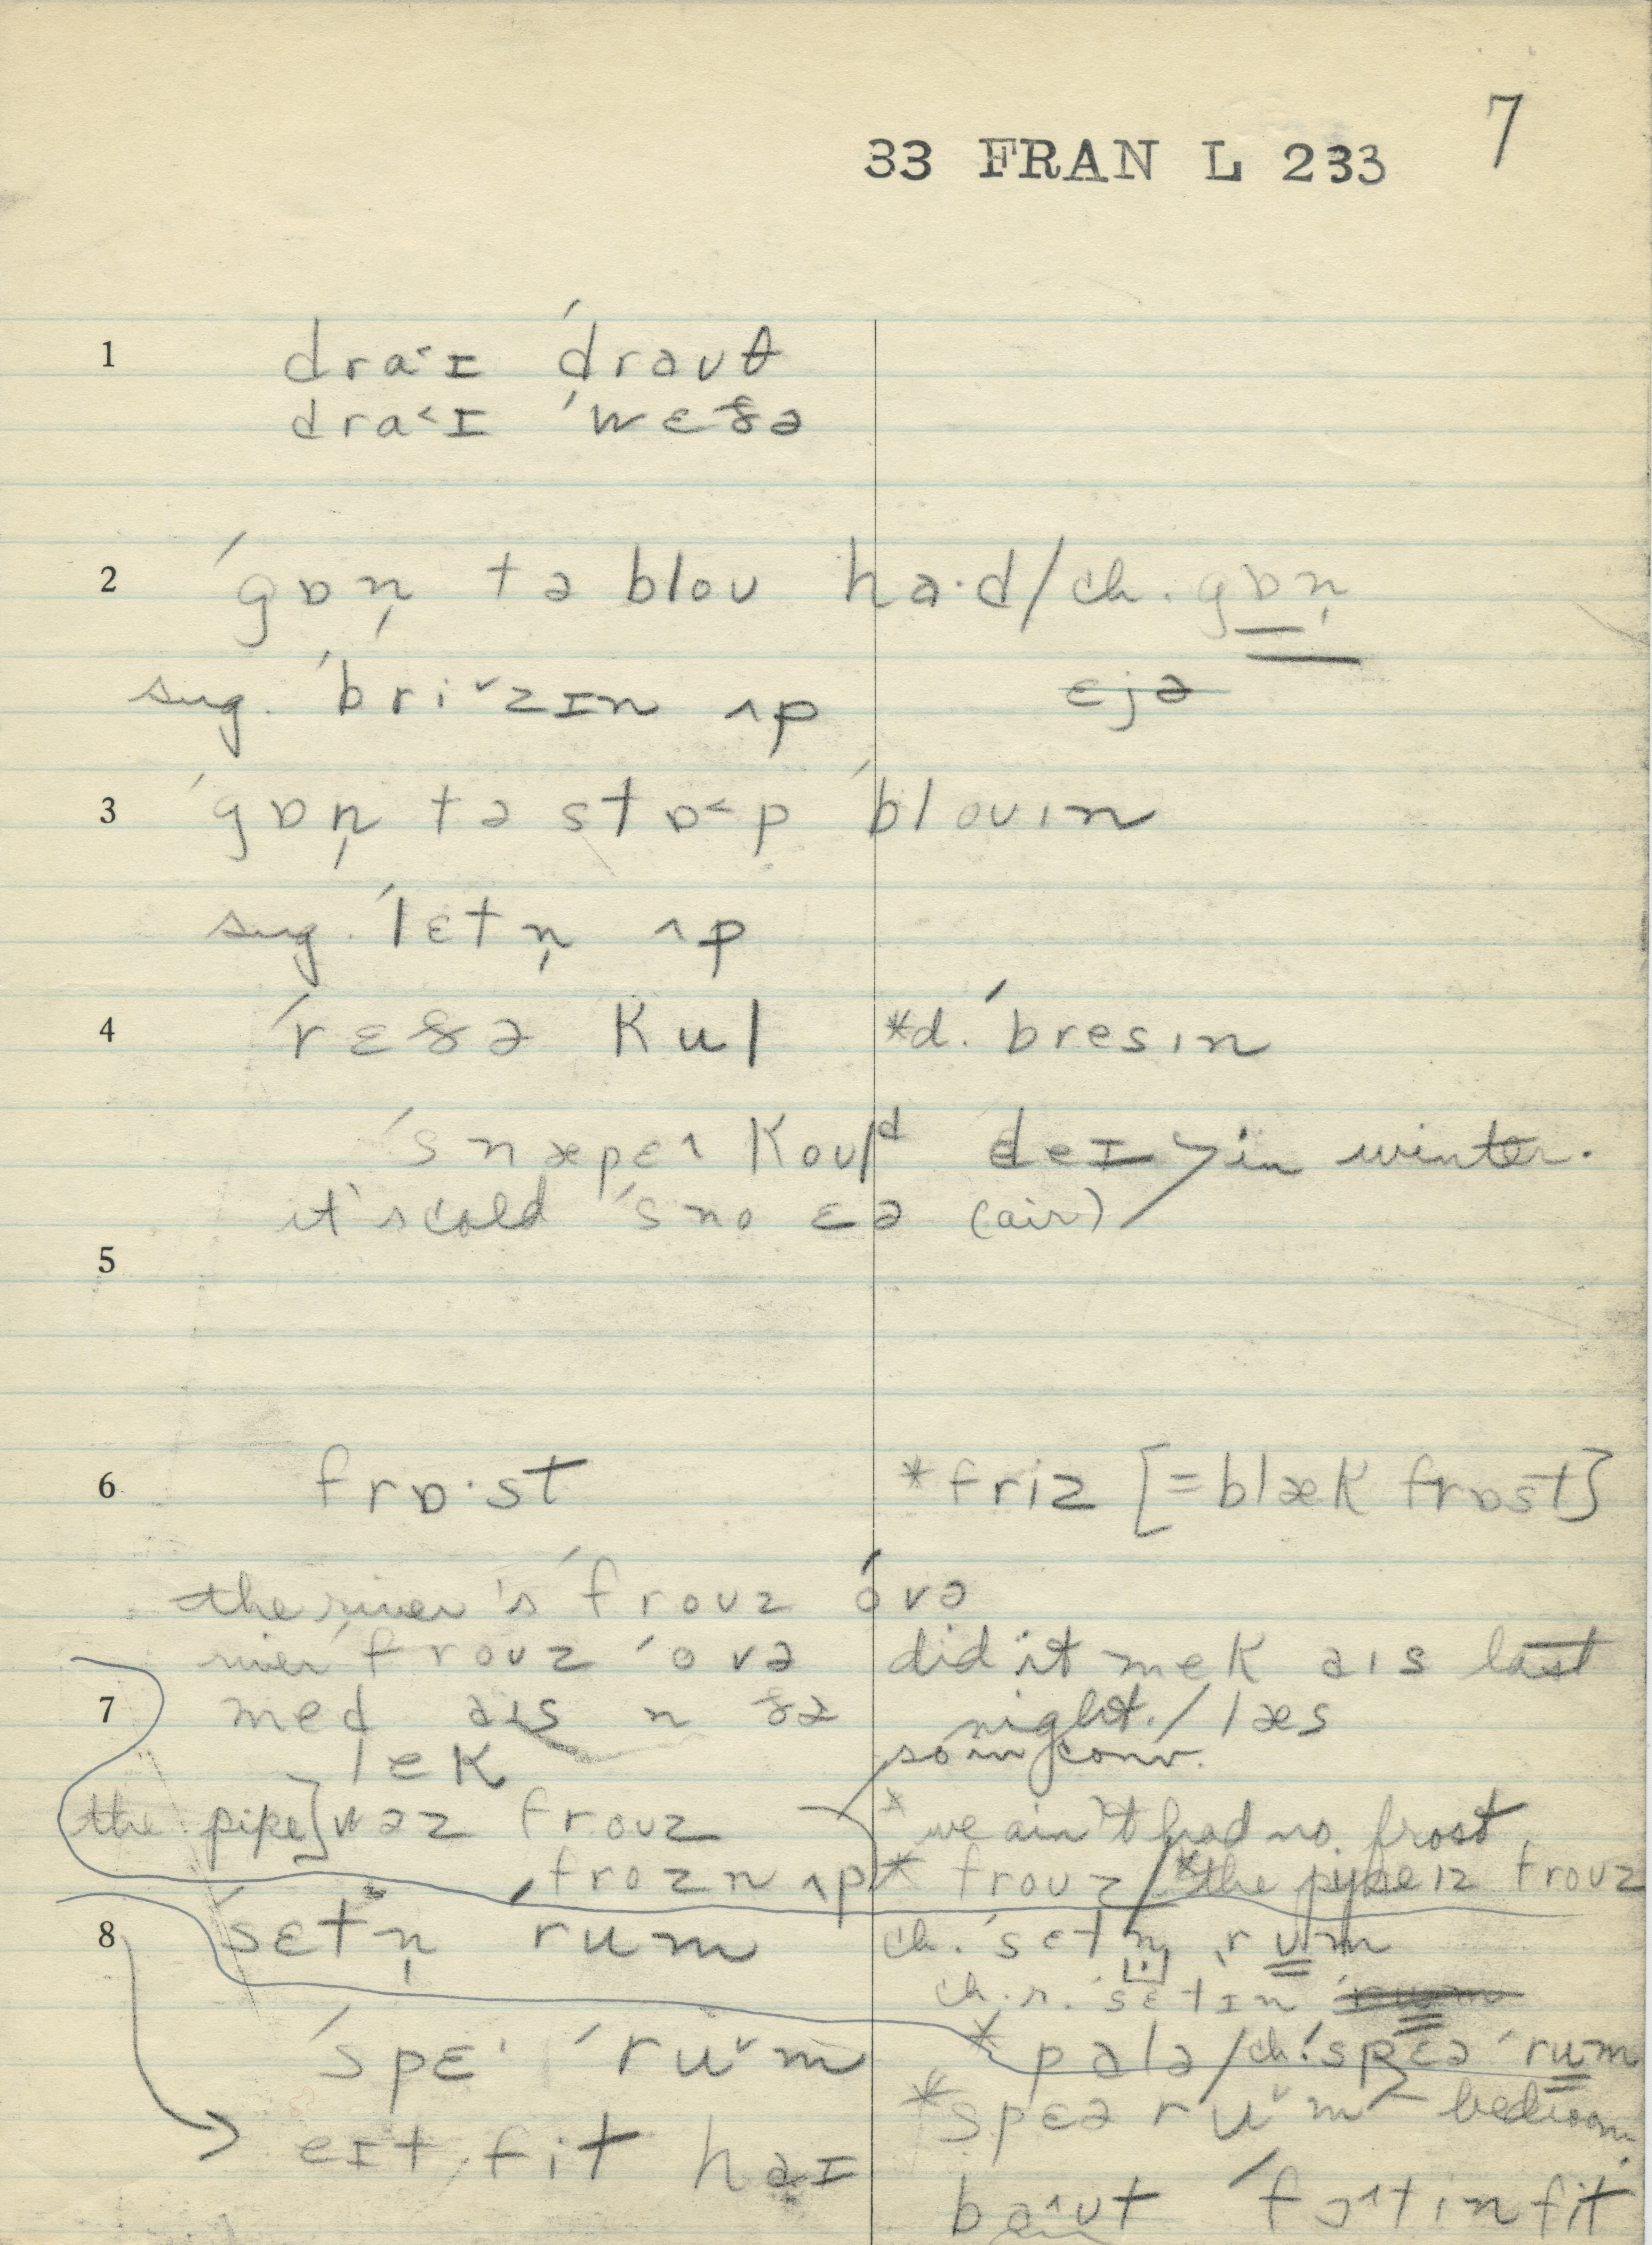 7
33 FRAN L 233
1 draˑɪ ˈdrəʊθ
draˑ<ɪ ˈwɛðə
2 ˈgɒn̩ tə bloʊ ha·d / ch. gɒn̩
sug. ˈbriˇzɪn ʌp ɛjə
3 ˈgɒn̩ tə stɒ<p ˈbloʊɪn
sug. ˈlɛtn̩ ʌp
4 ˈrɛðə kul *d. ˈbresɪn
ˈsnæpɛ koʊld deɪ in winter.
it's cold ˈs no ɛə (air)
5
6 frɒ·st *friz [=blæk frɒst]
the river's ˈfroʊz ˈovə
river ˈfroʊz ˈovə did it mek əɪs last
7 med əɪs n ðə night. / læs
lek so in conv.
the pipe] wəz froʊz *we ain't had no frost
ˌfrozn ʌp * froʊz / *the pipe ɪz froʊz
8 ˈsɛtn̩ rum ch. ˈsɛtn̩ rum
ch. r. ˈsɛtɪn
ˈspɛ ˈruˇm * palə / ch. ˈspɛə ˈrum
*spɛə ruˇm – bedroom
eɪt fit haɪ baʊt ˈfɔ^tin fit